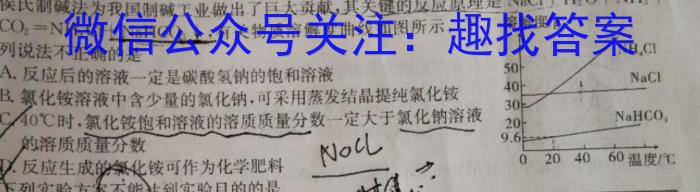 侯氏制碱法为我国制碱工业做出了巨大贡献,其关键的反应原理是 NaCl+
CO₂=N
列说法不正确的是
微信公众号关注:趣找答案
A. 反应后的溶液一定是碳酸氢钠的饱和溶液
B. 氯化铵溶液中含少量的氯化钠,可采用蒸发结晶提纯氯化铵
C. 40℃时,氯化铵饱和溶液的溶质质量分数一定大于氯化钠溶液
的溶质质量分数
D. 反应生成的氯化铵可作为化学肥料
下列实验方案不能达到实验目的的是
NaCl
50
40
30
20
9.6
0 20 40 60 温度/℃
Cl
NaCl
NaHCO₃